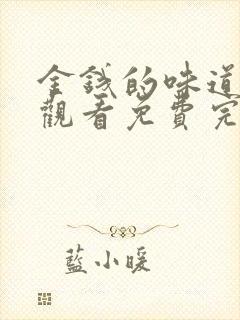 金錢的味道
觀看免費完
藍小暖